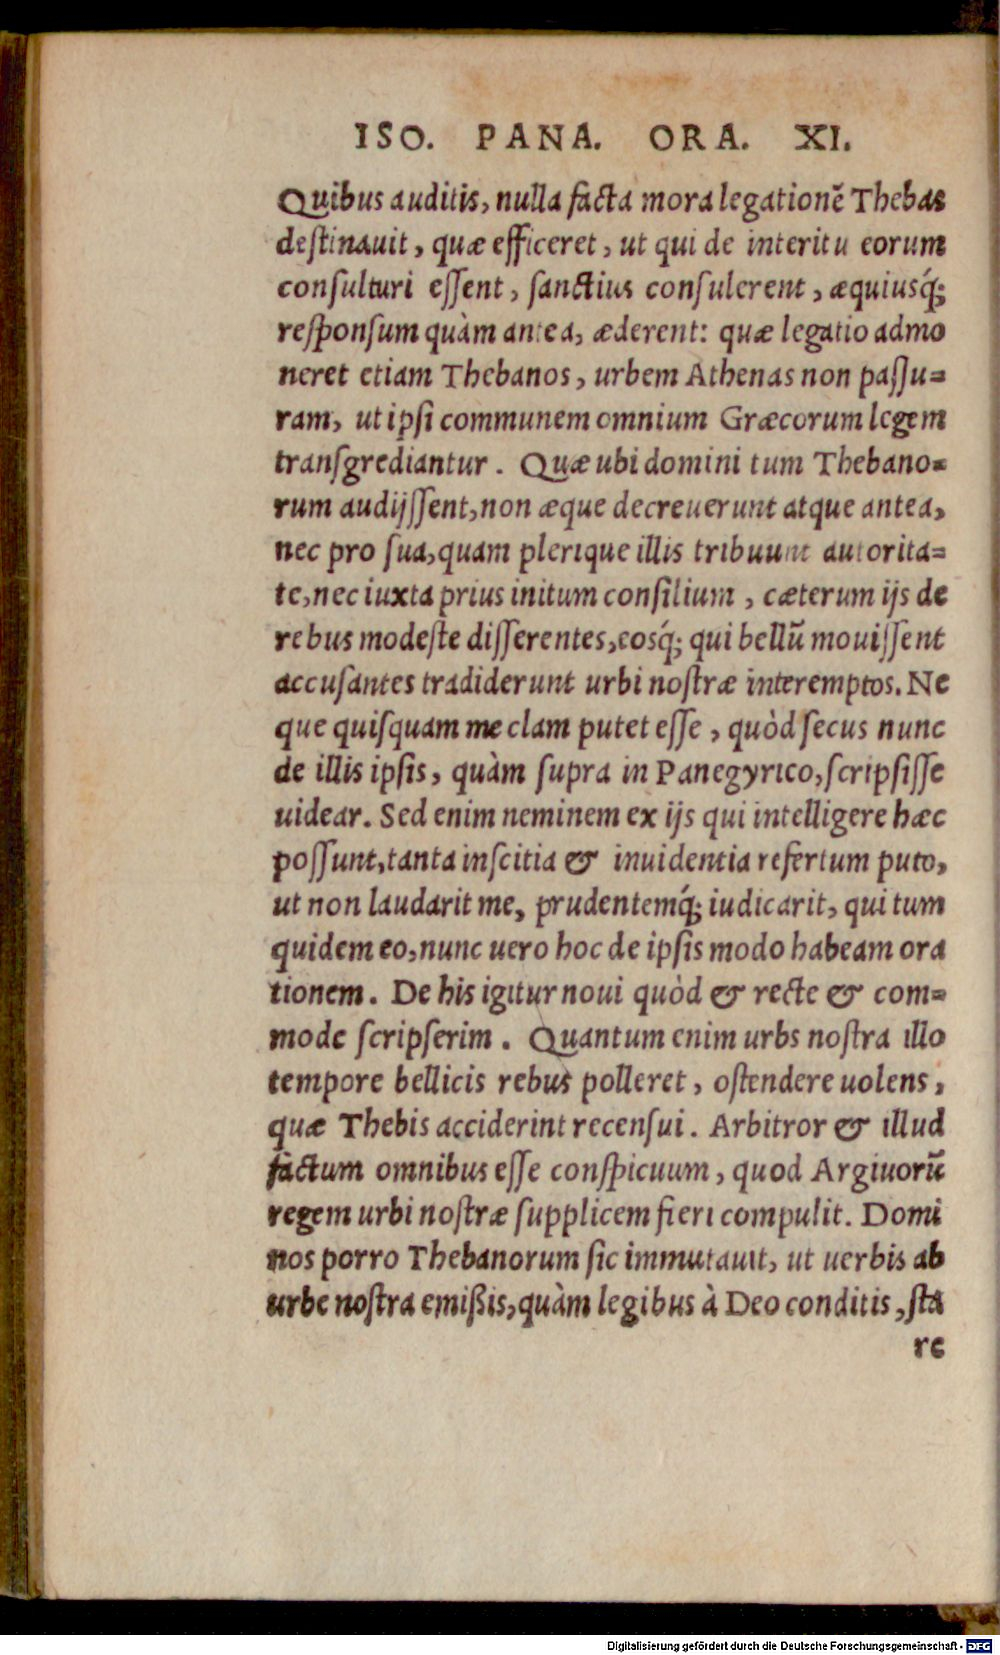 ISO. PANA. ORA. XI.
Quibus auditis, nulla facta mora legationẽ Thebas
deſtinauit, quæ efficeret, ut qui de interitu eorum
conſulturi eſſent, ſanctius conſulerent, æquiusq́;
reſponſum quàm antea, æderent: quæ legatio admo
neret etiam Thebanos, urbem Athenas non paſſu=
ram, ut ipſi communem omnium Græcorum legem
tranſgrediantur. Quæ ubi domini tum Thebano=
rum audijſſent, non æque decreuerunt atque antea,
nec pro ſua, quam plerique illis tribuunt autorita=
te, nec iuxta prius initum conſilium, cæterum ijs de
rebus modeſte diſſerentes, eosq́; qui bellũ mouiſſent
accuſantes tradiderunt urbi noſtræ interemptos. Ne
que quiſquam me clam putet eſſe, quòd ſecus nunc
de illis ipſis, quàm ſupra in Panegyrico, ſcripſiſſe
uidear. Sed enim neminem ex ijs qui intelligere hæc
poſſunt, tanta inſcitia & inuidentia refertum puto,
ut non laudarit me, prudentemq́; iudicarit, qui tum
quidem eo, nunc uero hoc de ipſis modo habeam ora
tionem. De his igitur noui quòd & recte & com=
mode ſcripſerim. Quantum enim urbs noſtra illo
tempore bellicis rebus polleret, oſtendere uolens,
quæ Thebis acciderint recenſui. Arbitror & illud
factum omnibus eſſe conſpicuum, quod Argiuorũ
regem urbi noſtræ ſupplicem fieri compulit. Domi
nos porro Thebanorum ſic immutauit, ut uerbis ab
urbe noſtra emißis, quàm legibus à Deo conditis, ſta
re
Digitalisierung gefördert durch die Deutsche Forschungsgemeinschaft - DFG